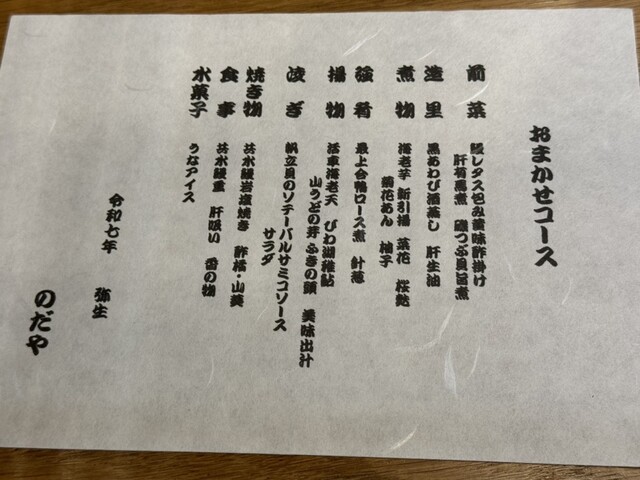 おまかせコース
前菜 鰻レタス包み黄味酢掛け
肝有馬煮 磯つぶ貝旨煮
造里 黒あわび酒蒸し 肝生油
煮物 海老芋 新引揚 菜花 桜麩
菊花あん 柚子
強肴 最上合鴨ロース煮 針葱
揚物 活車海老天 びわ湖稚鮎
山うどの芽 ふきの頭 美味出汁
凌ぎ 帆立貝のソテーバルサミコソース
サラダ
焼き物 共水鰻岩塩焼き 酢橘・山葵
食事 共水鰻重 肝吸い 香の物
水菓子 うなアイス
令和七年 弥生
のだや